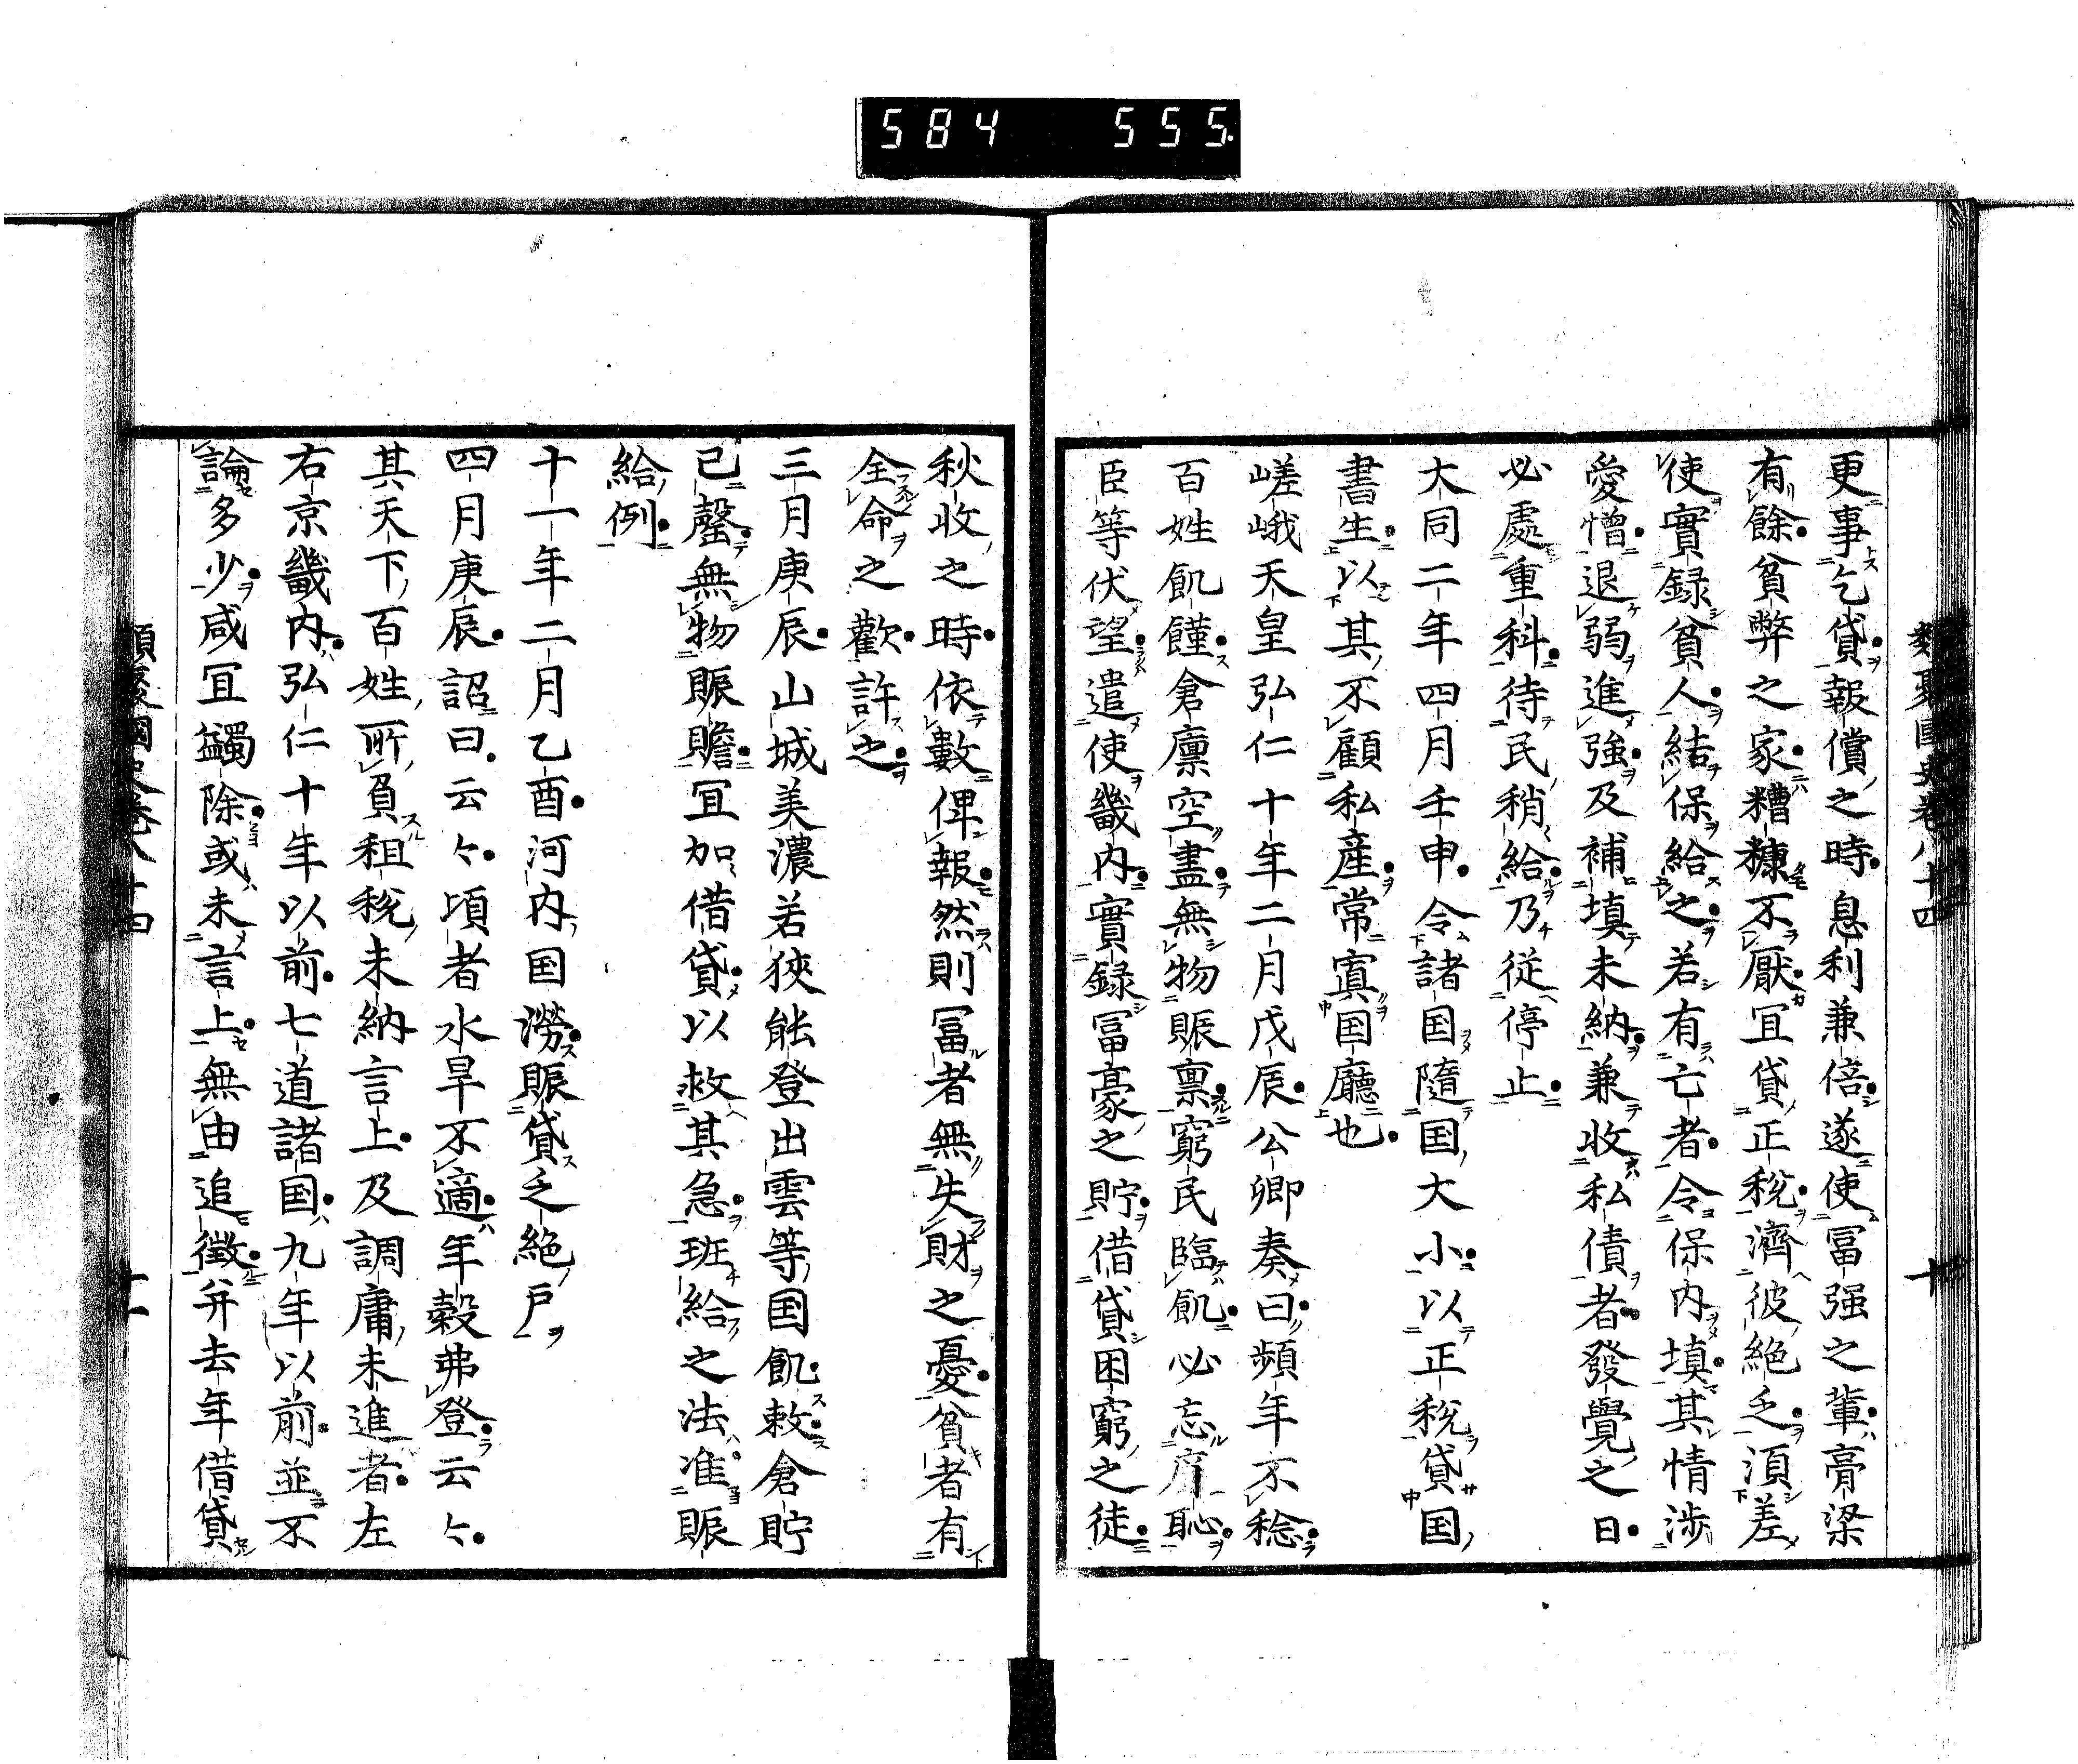 584 555
類聚國史卷八十四 十
更事乞貸報償之時息利兼倍遂使冨强之軰膏梁
有餘貧弊之家糟糠不厭冝貸正稅濟彼絶乏湏差
使實録貧人結保給之若有亡者令保内填其情渉
愛憎退弱進強及補填未納兼收私債者發覺之日
必處重科待民稍給乃従停止
大同二年四月壬申令諸国隨国大小以正稅貸国
書生以其不顧私産常寘国廳也
嵯峨天皇弘仁十年二月戊辰公卿奏曰頻年不稔
百姓飢饉倉廪空盡無物賑禀窮民臨飢必忘廉恥
臣等伏望遣使畿内實録冨豪之貯借貸困窮之徒
秋收之時依數俾報然則冨者無失財之憂貧者有
全命之歡許之
三月庚辰山城美濃若狹能登出雲等国飢敕倉貯
已罄無物賑贍冝加借貸以救其急班給之法准賑
給例
十一年二月乙酉河内国澇賑貸乏絶戸
四月庚辰詔曰云々頃者水旱不適年穀弗登云々
其天下百姓所負租稅未納言上及調庸未進者左
右京畿内弘仁十年以前七道諸国九年以前並不
論多少咸冝蠲除或未言上無由追徴并去年借貸
類聚國史卷八十四 十一